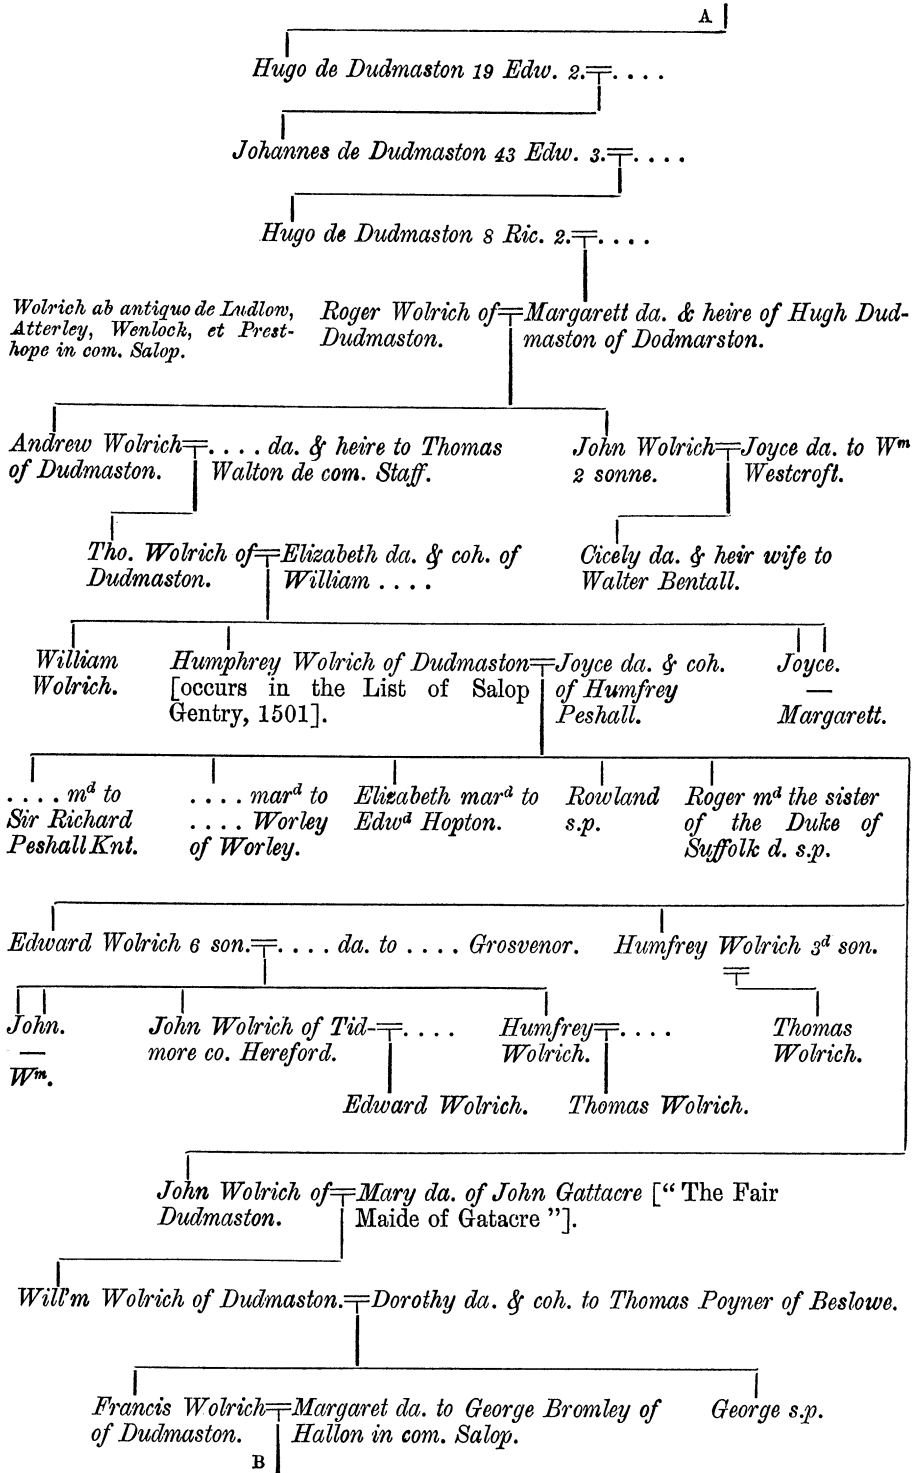 A
Hugo de Dudmaston 19 Edw. 2.=. . . .
Johannes de Dudmaston 43 Edw. 3.=. . . .
Hugo de Dudmaston 8 Ric. 2.=. . . .
Wolrich ab antiquo de Ludlow,
Atterley, Wenlock, et Prest-
hope in com. Salop.
Roger Wolrich of=Margarett da. & heire of Hugh Dud-
Dudmaston. maston of Dodmarston.
Andrew Wolrich=. . . . da. & heire to Thomas
of Dudmaston. Walton de com. Staff.
John Wolrich=Joyce da. to Wm
2 sonne. Westcroft.
Tho. Wolrich of=Elizabeth da. & coh. of
Dudmaston. William . . . .
Cicely da. & heir wife to
Walter Bentall.
William
Wolrich.
Humphrey Wolrich of Dudmaston=Joyce da. & coh.
[occurs in the List of Salop of Humfrey
Gentry, 1501]. Peshall.
Joyce.
—
Margarett.
. . . . md to
Sir Richard
Peshall Knt.
. . . . mard to
. . . . Worley
of Worley.
Elizabeth mard to
Edwd Hopton.
Rowland
s.p.
Roger md the sister
of the Duke of
Suffolk d. s.p.
Edward Wolrich 6 son.=. . . . da. to . . . . Grosvenor.
Humfrey Wolrich 3d son.
=
John.
—
Wm.
John Wolrich of Tid-=. . . .
more co. Hereford.
Humfrey=. . . .
Wolrich.
Thomas
Wolrich.
Edward Wolrich.
Thomas Wolrich.
John Wolrich of=Mary da. of John Gattacre [“ The Fair
Dudmaston. Maide of Gatacre ”].
Will'm Wolrich of Dudmaston.=Dorothy da. & coh. to Thomas Poyner of Beslowe.
Francis Wolrich=Margaret da. to George Bromley of
of Dudmaston. Hallon in com. Salop.
George s.p.
B